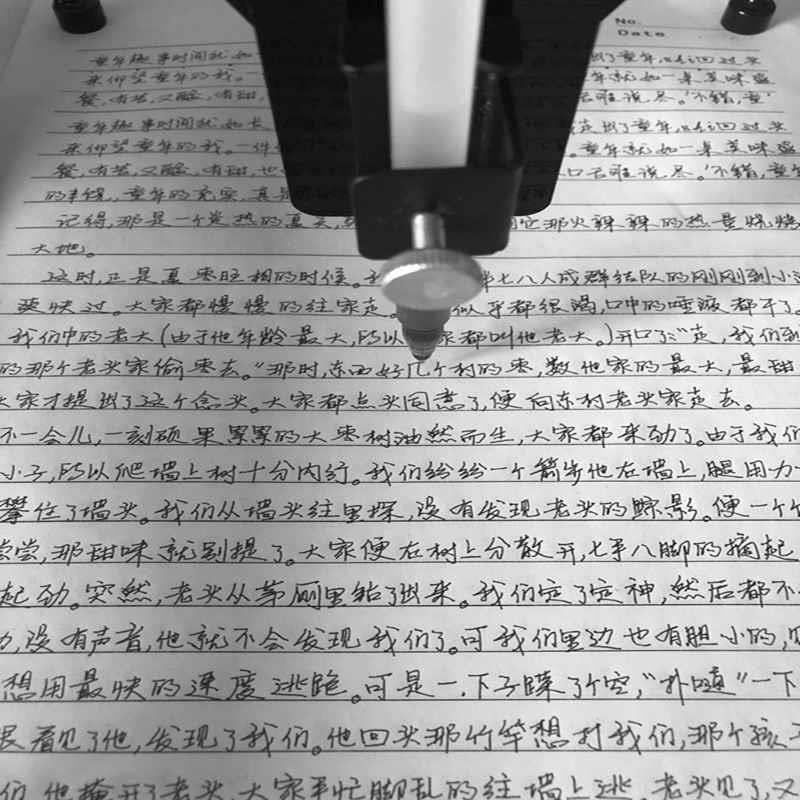 No.
Date
童年趣事时间就如 了童年,只会回过头
来仰望童年的我。一 年就如一桌美味盛
餐,有苦,又酸,有甜, 口舌难说尽。"不错,童
童年趣事时间就如长 走出了童年,只会回过头
来仰望童年的我。一件 。童年就如一桌美味盛
餐,有苦,又酸,有甜,也 口舌难说尽。"不错,童年
的丰锦,童年的充实,真是
记得,那是一个炎热的夏天, 它那火辣辣的热量烧烤
大地。
这时,正是夏枣旺相的时候。我 伴七八人成群结队的刚刚到小河
爽快过。大家都慢慢的往家走。 似乎都很渴,口中的唾液都干了。
我们中的老大(由于他年龄最大,所以 家都叫他老大。)开口了:"走,我们到
的那个老头家偷枣去。"那时,东西好几个村的枣,数他家的最大,最甜
大家才提出了这个念头。大家都点头同意了,便向东村老头家走去。
不一会儿,一刻硕果累累的大枣树油然而生,大家都来劲了。由于我们
小子,所以爬墙上树十分内行。我们纷纷一个箭步他在墙上,腿用力一
攀住了墙头。我们从墙头往里探,没有发现老头的踪影。便一个个
尝尝,那甜味就别提了。大家便在树上分散开,七手八脚的摘起
起劲。突然,老头从茅厕里钻了出来。我们定了定神,然后都不
动,没有声音,他就不会发现我们了。可我们里边也有胆小的,
想用最快的速度逃跑。可是一下子踩了个空,"扑嗵"一下
眼看见了他,发现了我们。他回头那竹竿想打我们,那个孩子
们他掩开了老头,大家手忙脚乱的往墙上逃,老头见了,又